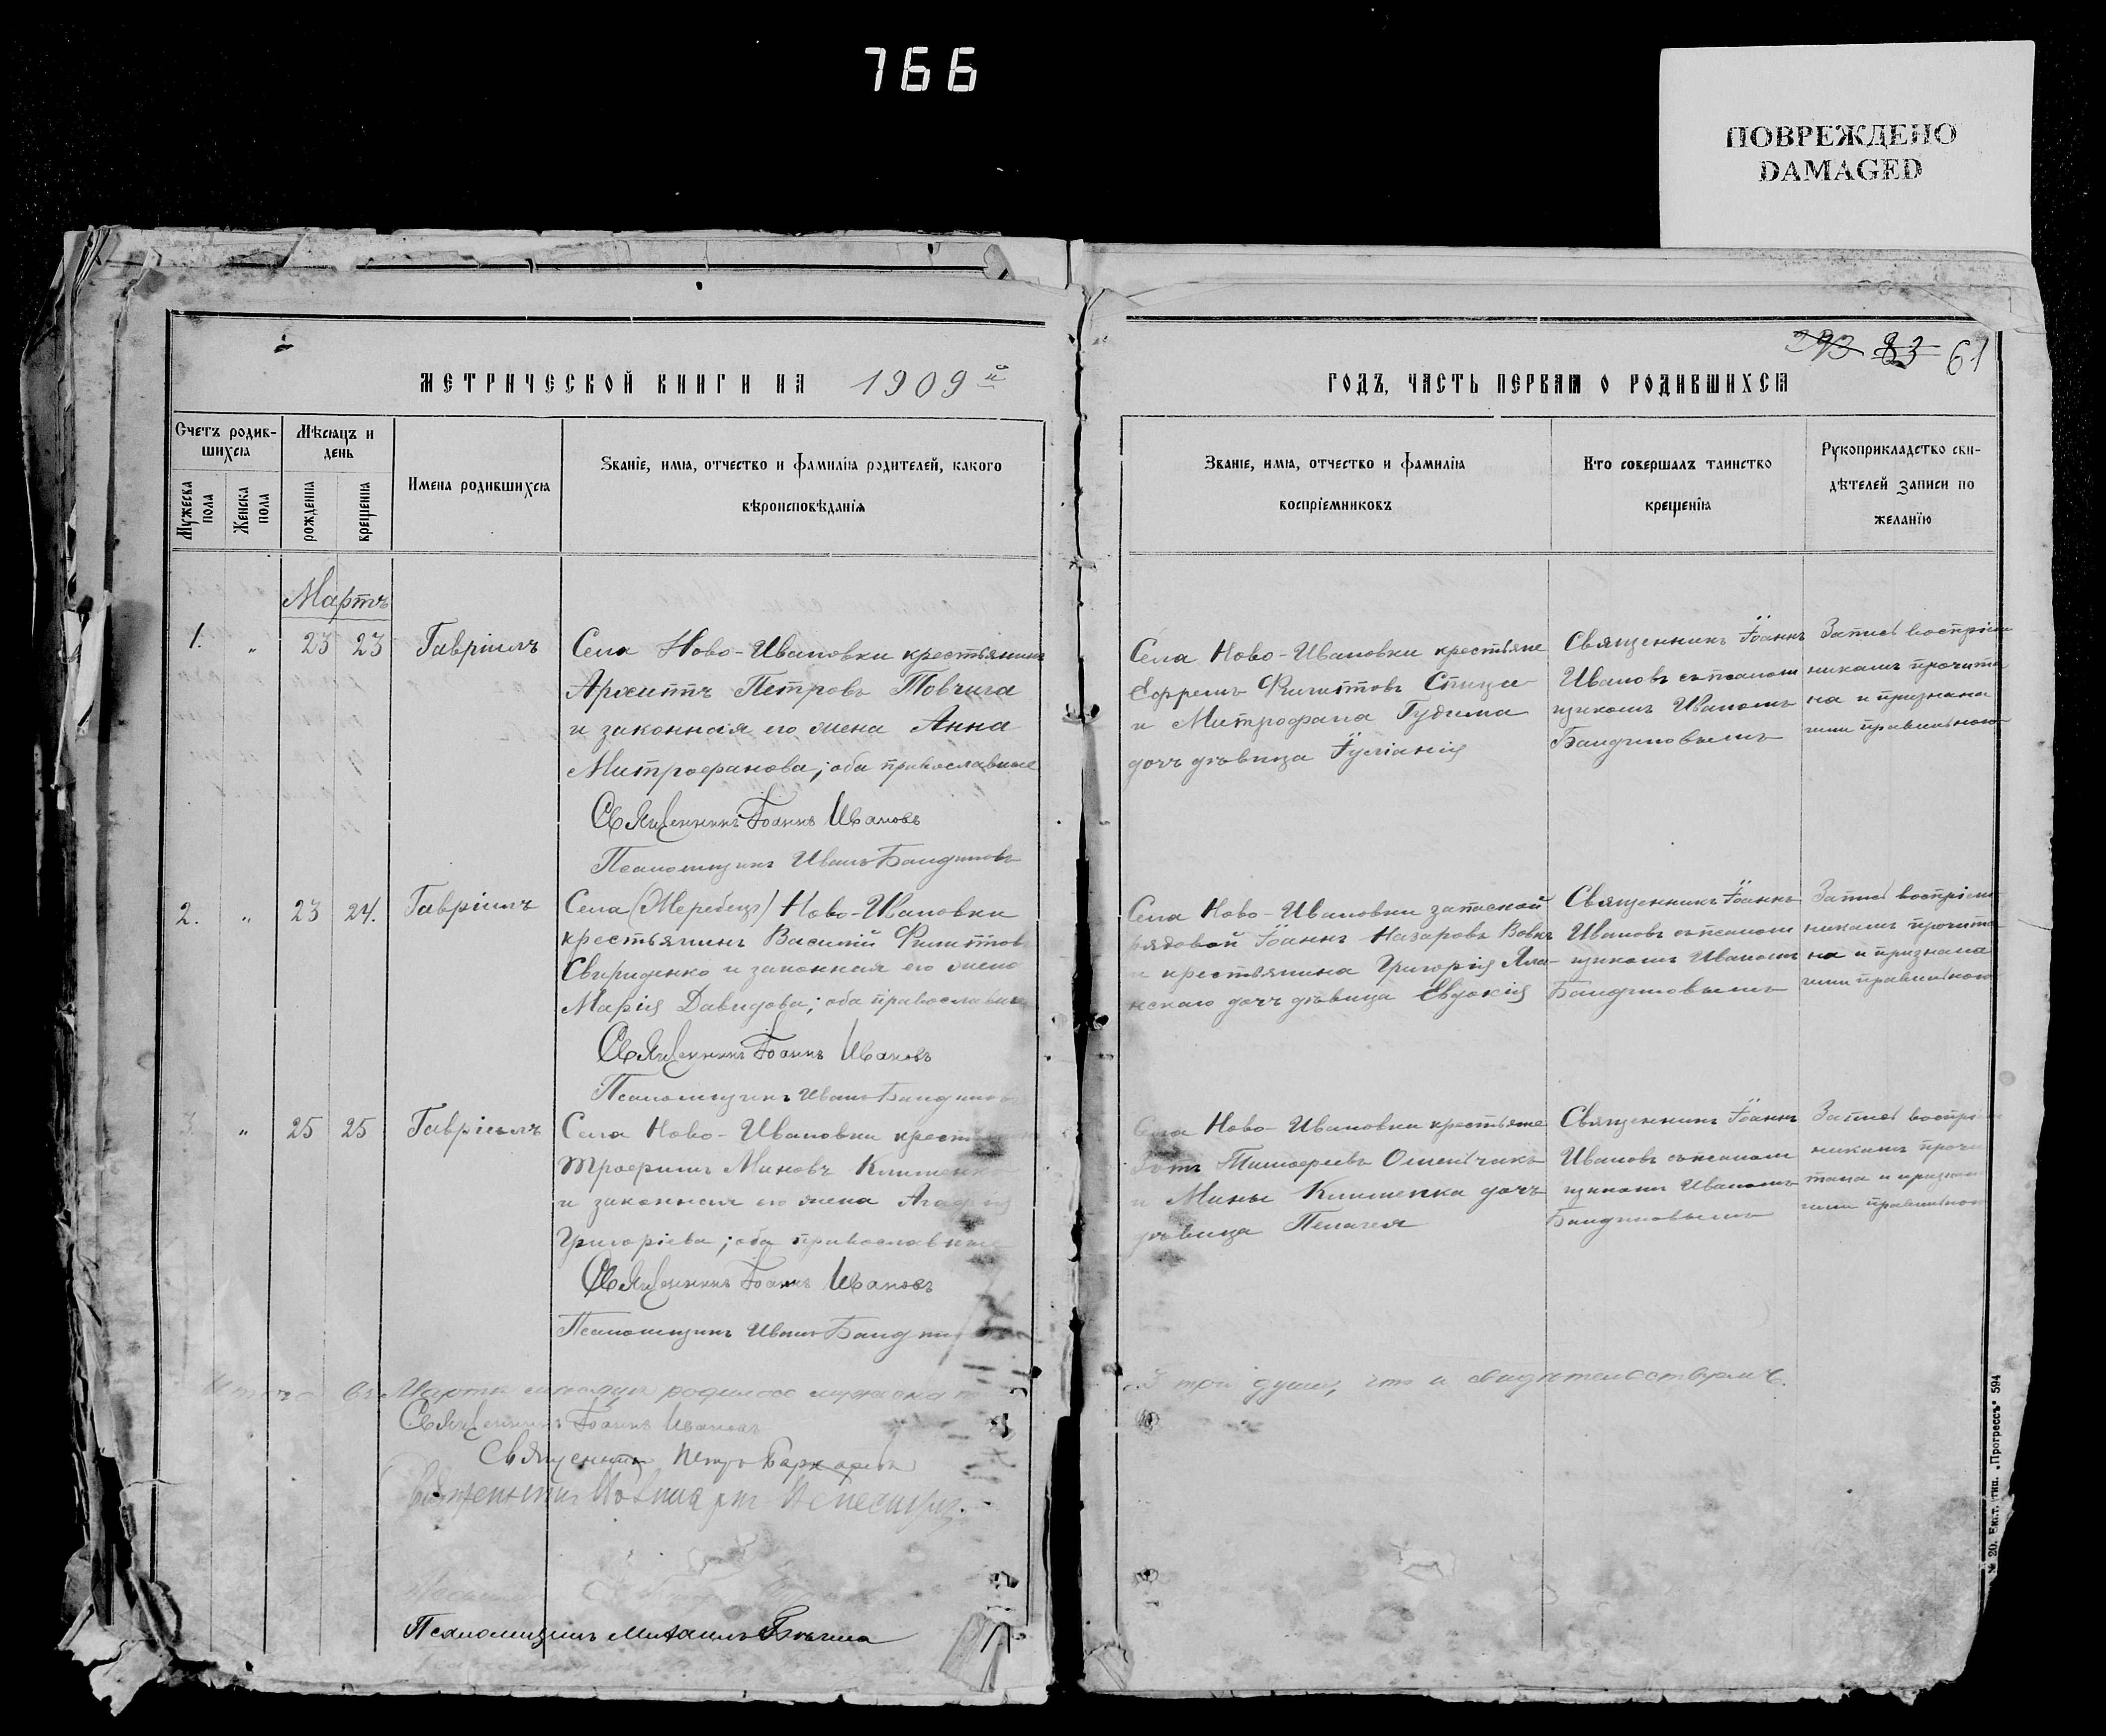 766
ПОВРЕЖДЕНО
DAMAGED
МЕТРИЧЕСКОЙ КНИГИ НА 1909 й
Счетъ родив-
шихся
Мѣсяцъ и
день
Мужеска
пола
Женска
пола
рожденія
крещенія
Имена родившихся
Званіе, имя, отчество и фамилія родителей, какого
вѣроисповѣданія
Мартъ
1. „ 23 23 Гавріилъ
Села Ново-Ивановки крестьянинъ
Архиппъ Петровъ Товчига
и законная его жена Анна
Митрофанова; оба православные
Священникъ Іоаннъ Ивановъ
Псаломщикъ Иванъ
2. „ 23 24. Гавріилъ
Села (Жеребецъ) Ново-Ивановки
крестьянинъ Василій Филиппов
Свириденко и законная его жена
Марія Давидова; оба православны
Священникъ Іоаннъ Ивановъ
Псаломщикъ Иванъ
3. „ 25 25 Гавріилъ
Села Ново-Ивановки
Трофимъ Миновъ Клименко
и законная его жена
Григоріева; оба православные
Священникъ Іоаннъ Ивановъ
Псаломщикъ Иванъ
Итого въ Мартѣ мѣсяцѣ родилось мужеска
Священникъ Іоаннъ Ивановъ
Священникъ Петръ
Священникъ
Псаломщикъ Михаилъ
293 83 61
ГОДЪ, ЧАСТЬ ПЕРВАЯ О РОДИВШИХСЯ
Званіе, имя, отчество и фамилія
воспріемниковъ
Кто совершалъ таинство
крещенія
Рукоприкладство сви-
дѣтелей записи по
желанію
Села Ново-Ивановки крестьяне
Ефремъ Филипповъ Спица
и Митрофана Гудима
дочь дѣвица Іуліанія
Священникъ Іоаннъ
Ивановъ съ псалом
щикомъ Иваномъ
Запись воспріем
никамъ прочита
на и признана
ими правильною
Села Ново-Ивановки запасной
рядовой Іоаннъ Назаровъ Вовкъ
и крестьянина Григорія
дочь дѣвица Евдокія
Священникъ Іоаннъ
Ивановъ съ псалом
щикомъ Иваномъ
Запись воспріем
никамъ прочита
на и признана
ими правильною
Села Ново-Ивановки крестьяне
Тимофеевъ Омельчакъ
и Мины Клименка дочь
дѣвица Пелагея
Священникъ Іоаннъ
Ивановъ съ псалом
щикомъ Иваномъ
Запись воспріем
никамъ прочи
тана и признан
ими правильною
три души, что и свидѣтельствуемъ.
№ 20. Екат. тип. „Прогрессъ" 594